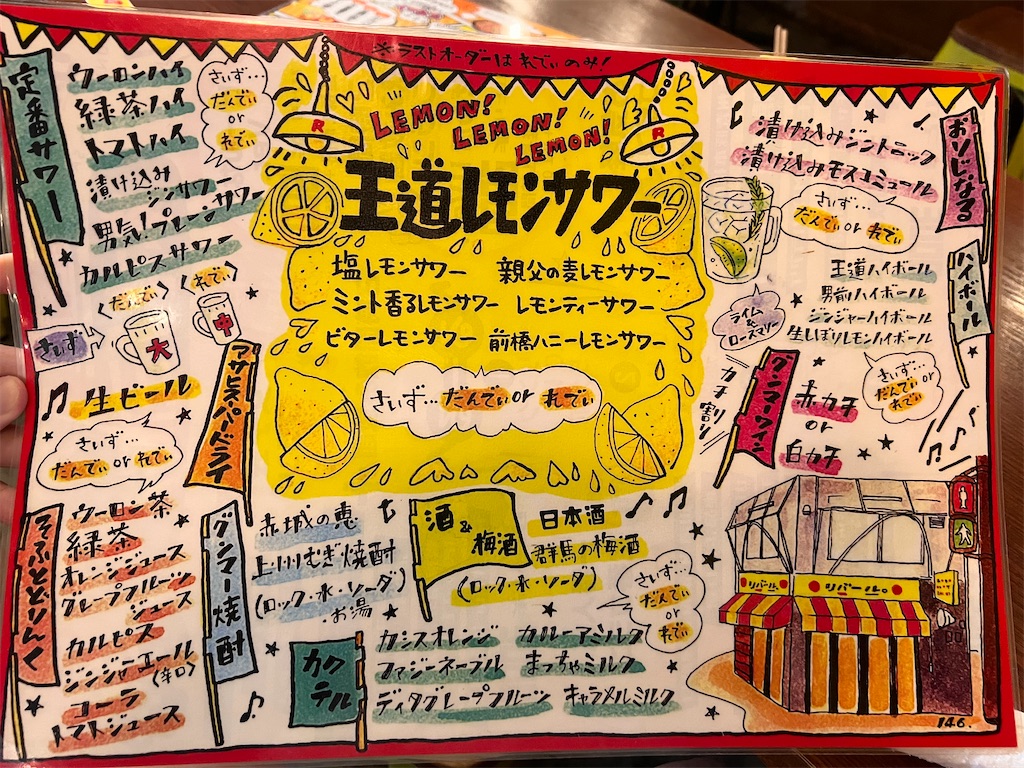 ※ラストオーダーはれでぃのみ!
定番サワー
ウーロンハイ
緑茶ハイ
トマトハイ
漬け込み
ジンサワー
男気!プレーンサワー
カルピスサワー
さいず…
だんでぃ
or
れでぃ
<だんでぃ>
<れでぃ>
さいず
大
中
アサヒスーパードライ
生ビール
さいず…
だんでぃ or れでぃ
R
R
LEMON!
LEMON!
LEMON!
王道レモンサワー
塩レモンサワー
親父の麦レモンサワー
ミント香るレモンサワー
レモンティーサワー
ビターレモンサワー
前橋ハニーレモンサワー
さいず…だんでぃ or れでぃ
おりじなる
漬け込みジントニック
漬け込みモスコミュール
さいず…
だんでぃ or れでぃ
ライム&
ローズマリー
ハイボール
王道ハイボール
男前ハイボール
ジンジャーハイボール
生しぼりレモンハイボール
さいず…
だんでぃ or
れでぃ
グンマーワイン
カチ割り
赤カチ
or
白カチ
そふとどりんく
ウーロン茶
緑茶
オレンジジュース
グレープフルーツ
ジュース
カルピス
ジンジャーエール
(辛口)
コーラ
トマトジュース
グンマー焼酎
赤城の恵
上州むぎ焼酎
(ロック・水・ソーダ)
お湯
酒&
梅酒
日本酒
群馬の梅酒
(ロック・水・ソーダ)
さいず…
だんでぃ
or
れでぃ
カクテル
カシスオレンジ
カルーアミルク
ファジーネーブル
まっちゃミルク
ディタグレープフルーツ
キャラメルミルク
リバール
リバール。
146.